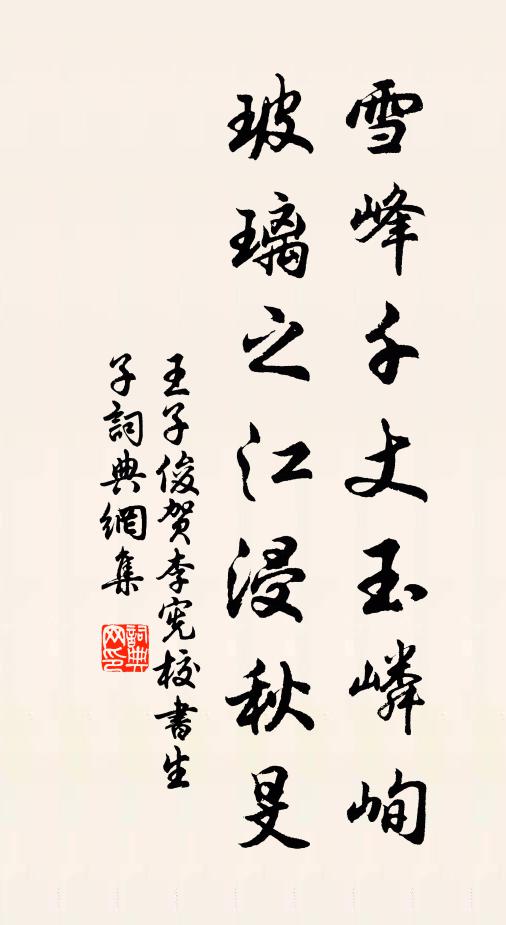 雪峰千丈玉嶙峋
玻璃之江浸秋旻
王子俊贺李宪校書生
子詞典網集
詞典网印